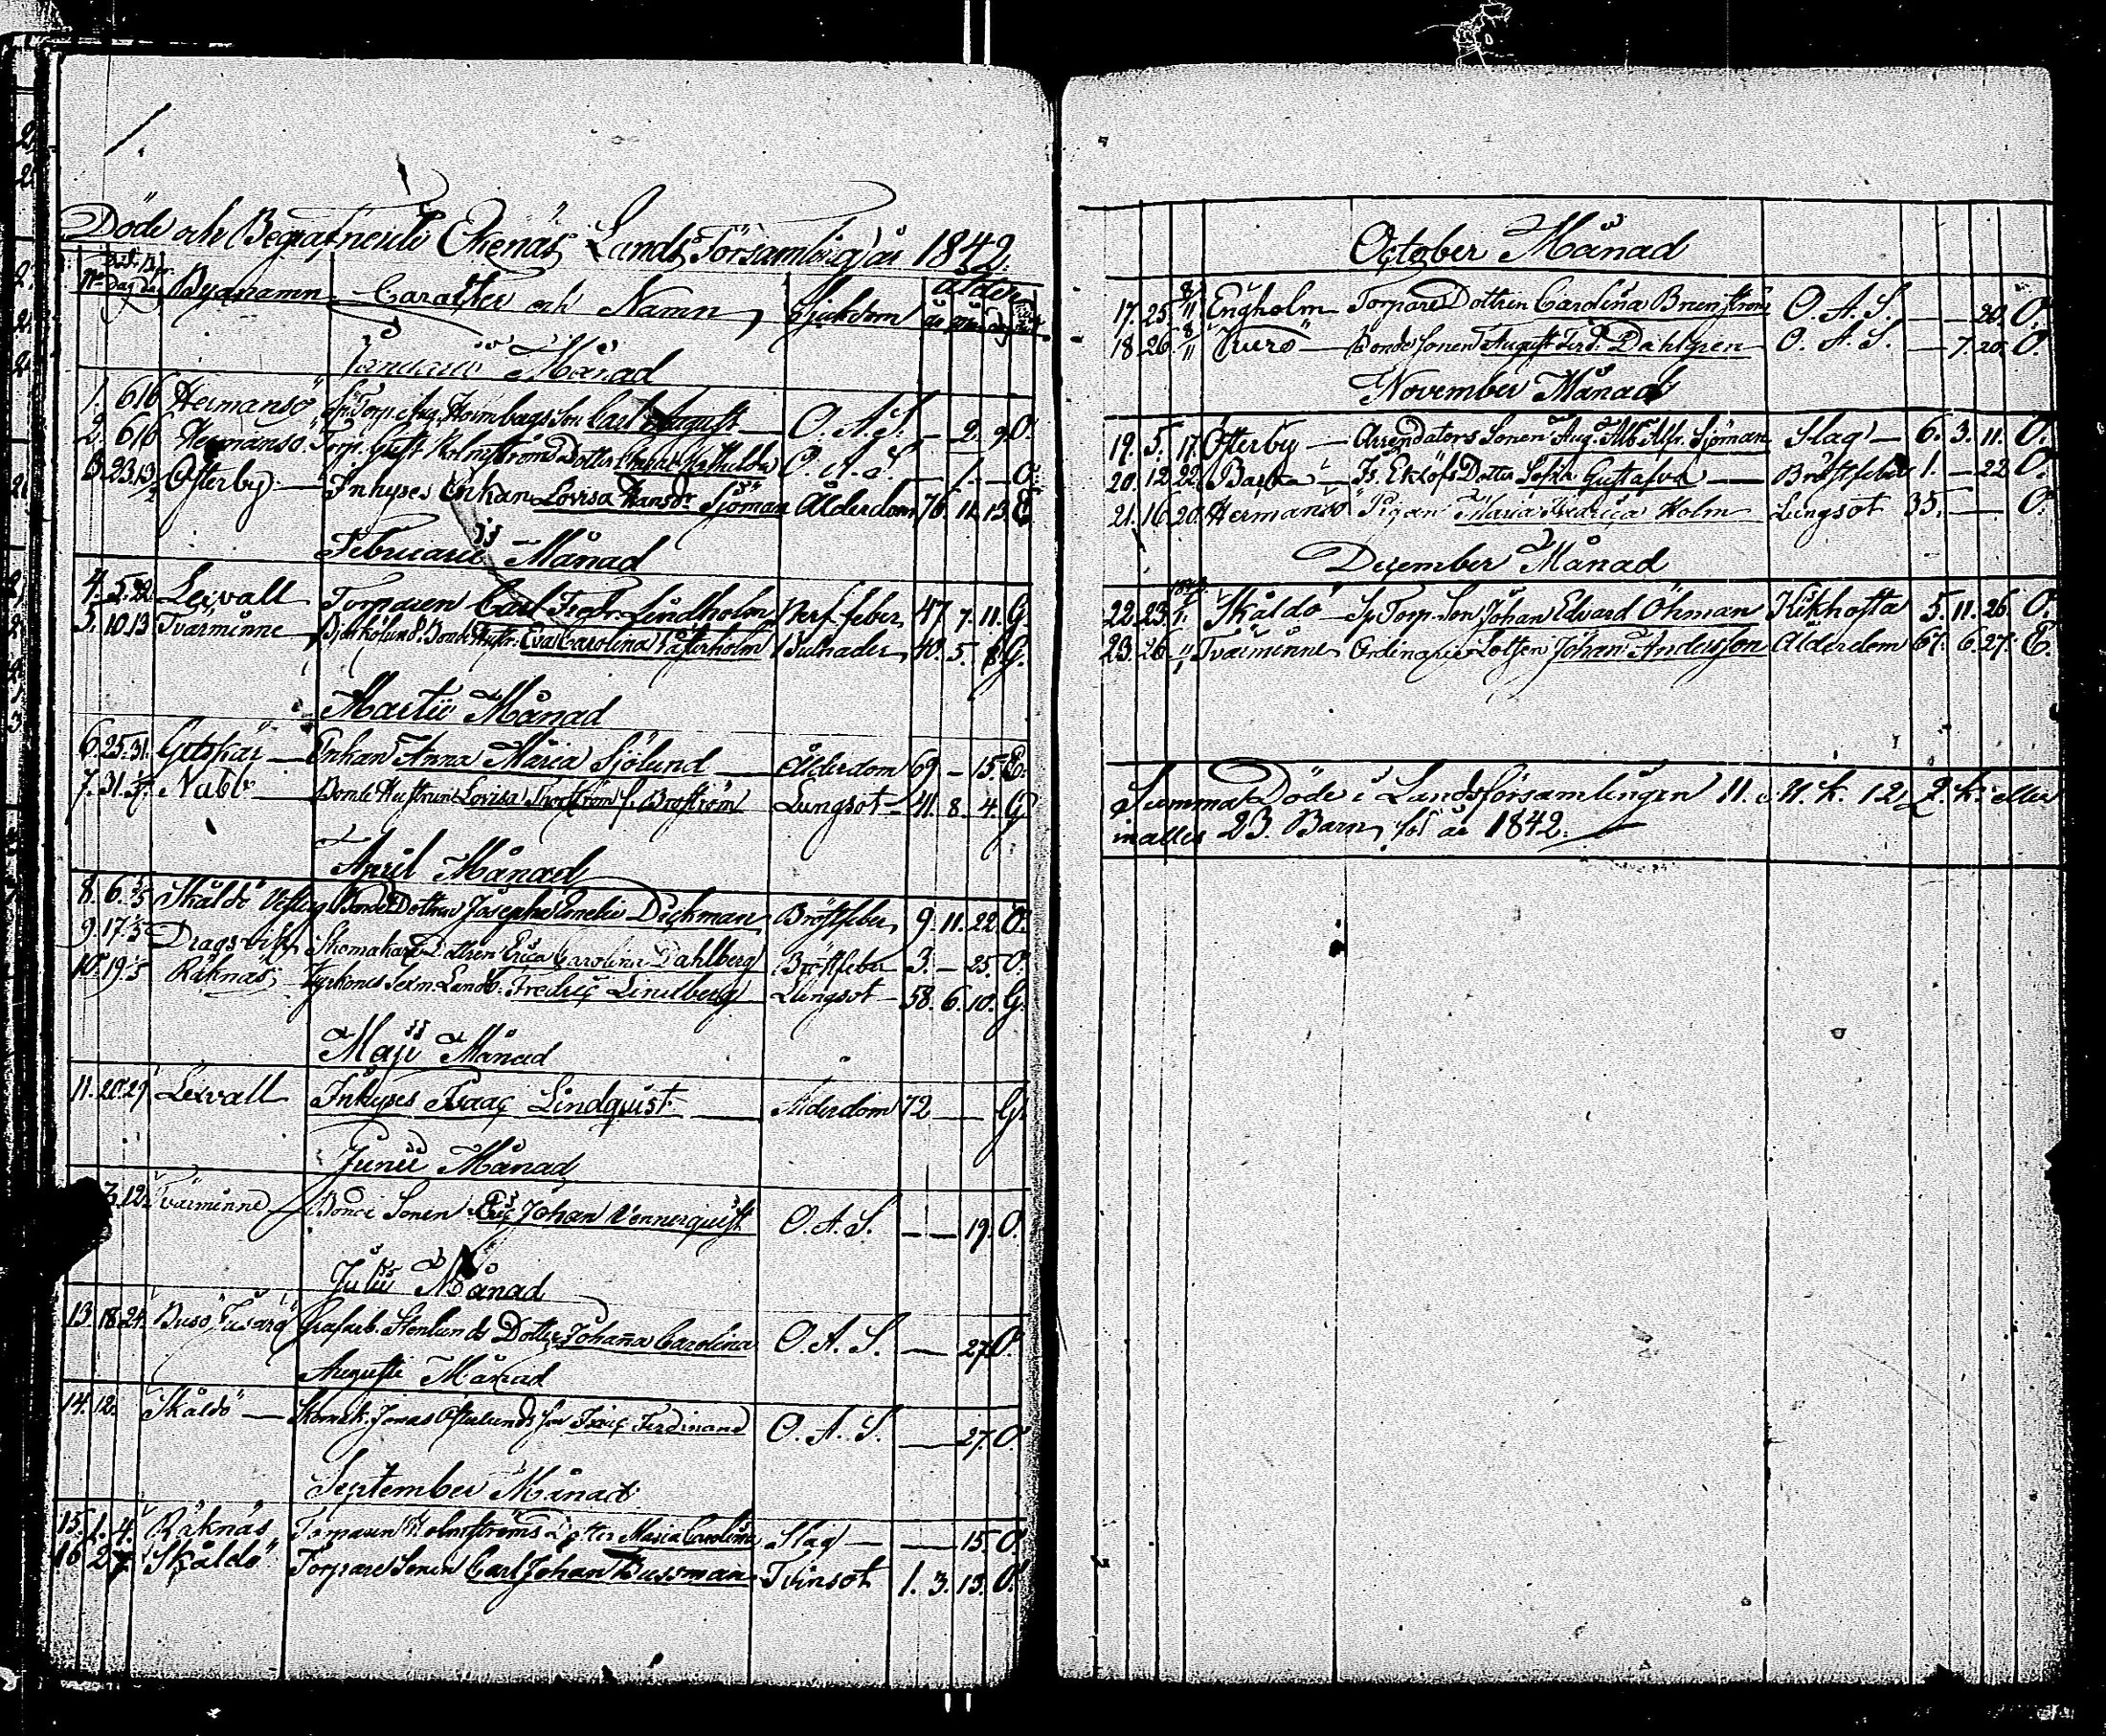 Döde och Begrafne uti Ekenäs Lands Församling år 1842.
No Död. Bgr. Bynamn Caracter och Namn Sjukdom Ålder
dag da. år mån dag
Januarii Månad
1. 6 16 Hermansö Torp. Aug. Holmbergs Son Carl August O. A. S. — 2. 9. O.
2. 6 16 Hermansö Torp. Gust. Holmströms Dotter Mathilda O. A. S. — 1. — O.
3. 23. 13/2 Österby — Inhyses Enkan Lovisa Hansdr Sjöman Ålderdom 76. 11. 13. E
Februarii Månad
4. 5. 22 Lexvall Torparen Carl Fredr. Lindholm Nerf feber 47 7. 11. G.
5. 10. 13 Tvärminne Björkölunds Bonde Hustr. Eva Carolina Påfverholm Bulnader 40. 5. 8 G.
Martii Månad
6. 25. 31. Gitskär — Enkan Anna Maria Sjölund — Ålderdom 69 — 15. E.
7. 31. Nabb — Bonde Hustrun Lovisa Thorström f. Broström Lungsot — 41. 8. 4. G
April Månad
8. 6. 5 Skåldö Vesterby Bonde Dottren Josepha Emelie Dickman Bröstfeber 9. 11. 22. O.
9. 17. 5 Dragsvik Skomakare Dottren Erica Carolina Dahlberg Bröstfeber 3. — 25. O.
10. 19. 5 Räknäs — Landb. Fredric Lindberg Lungsot — 58. 6. 10. G.
Maji Månad
11. 20. 29 Lexvall Inhyses Isaac Lindquist — Ålderdom 72 — G.
Junii Månad
3. 12. Tvärminne Bonde Sonen Eric Johan Vennerquist O. A. S. — — 19. O.
Julii Månad
13. 18. 24. Busö, Jusarö Grufarb. Stenlunds Dotter Johaña Carolina O. A. S. — 27. O.
Augusti Månad
14. 12. Skåldö — Skomak. Jonas Österlunds son Isaac Ferdinand O. A. S. — 27. O.
September Månad
15. 1. 4. Räknäs Torparen Holmströms Dotter Maria Carolina Slag — — 15. O.
16 2 7. Skåldö Torpare Sonen Carl Johan Bussman Tvinsot 1. 3. 13. O.
October Månad
17. 25. 8/11 Engholm Torpare Dottren Carolina Brenström O. A. S. — — 20. O.
18 26. 8/11 Kurö — Bonde Sonen August Ferd. Dahlgren O. A. S. — 7. 20. O.
November Månad
19. 5. 17. Österby — Arrendators Sonen Aug. Alb. Alfr. Sjöman Slag — 6. 3. 11. O.
20. 12 22. Is. Eklöfs Dotter Sofia Gustafva — Bröstfeber 1. — 22. O.
21. 16. 20. Hermansö Pigan Maria Fredrica Holm Lungsot 35. — O.
December Månad
22. 23. Skåldö — Torp. Son Johan Edvard Öhman Kikhosta 5. 11. 26. O.
23. 26. Tvärminne Ordinarie Lotsen Johan Andersson Ålderdom 67. 6. 27. E.
Summa Döde i Landsförsamlingen 11. M. K. 12 Q. K. eller
inalles 23. Barn för år 1842.